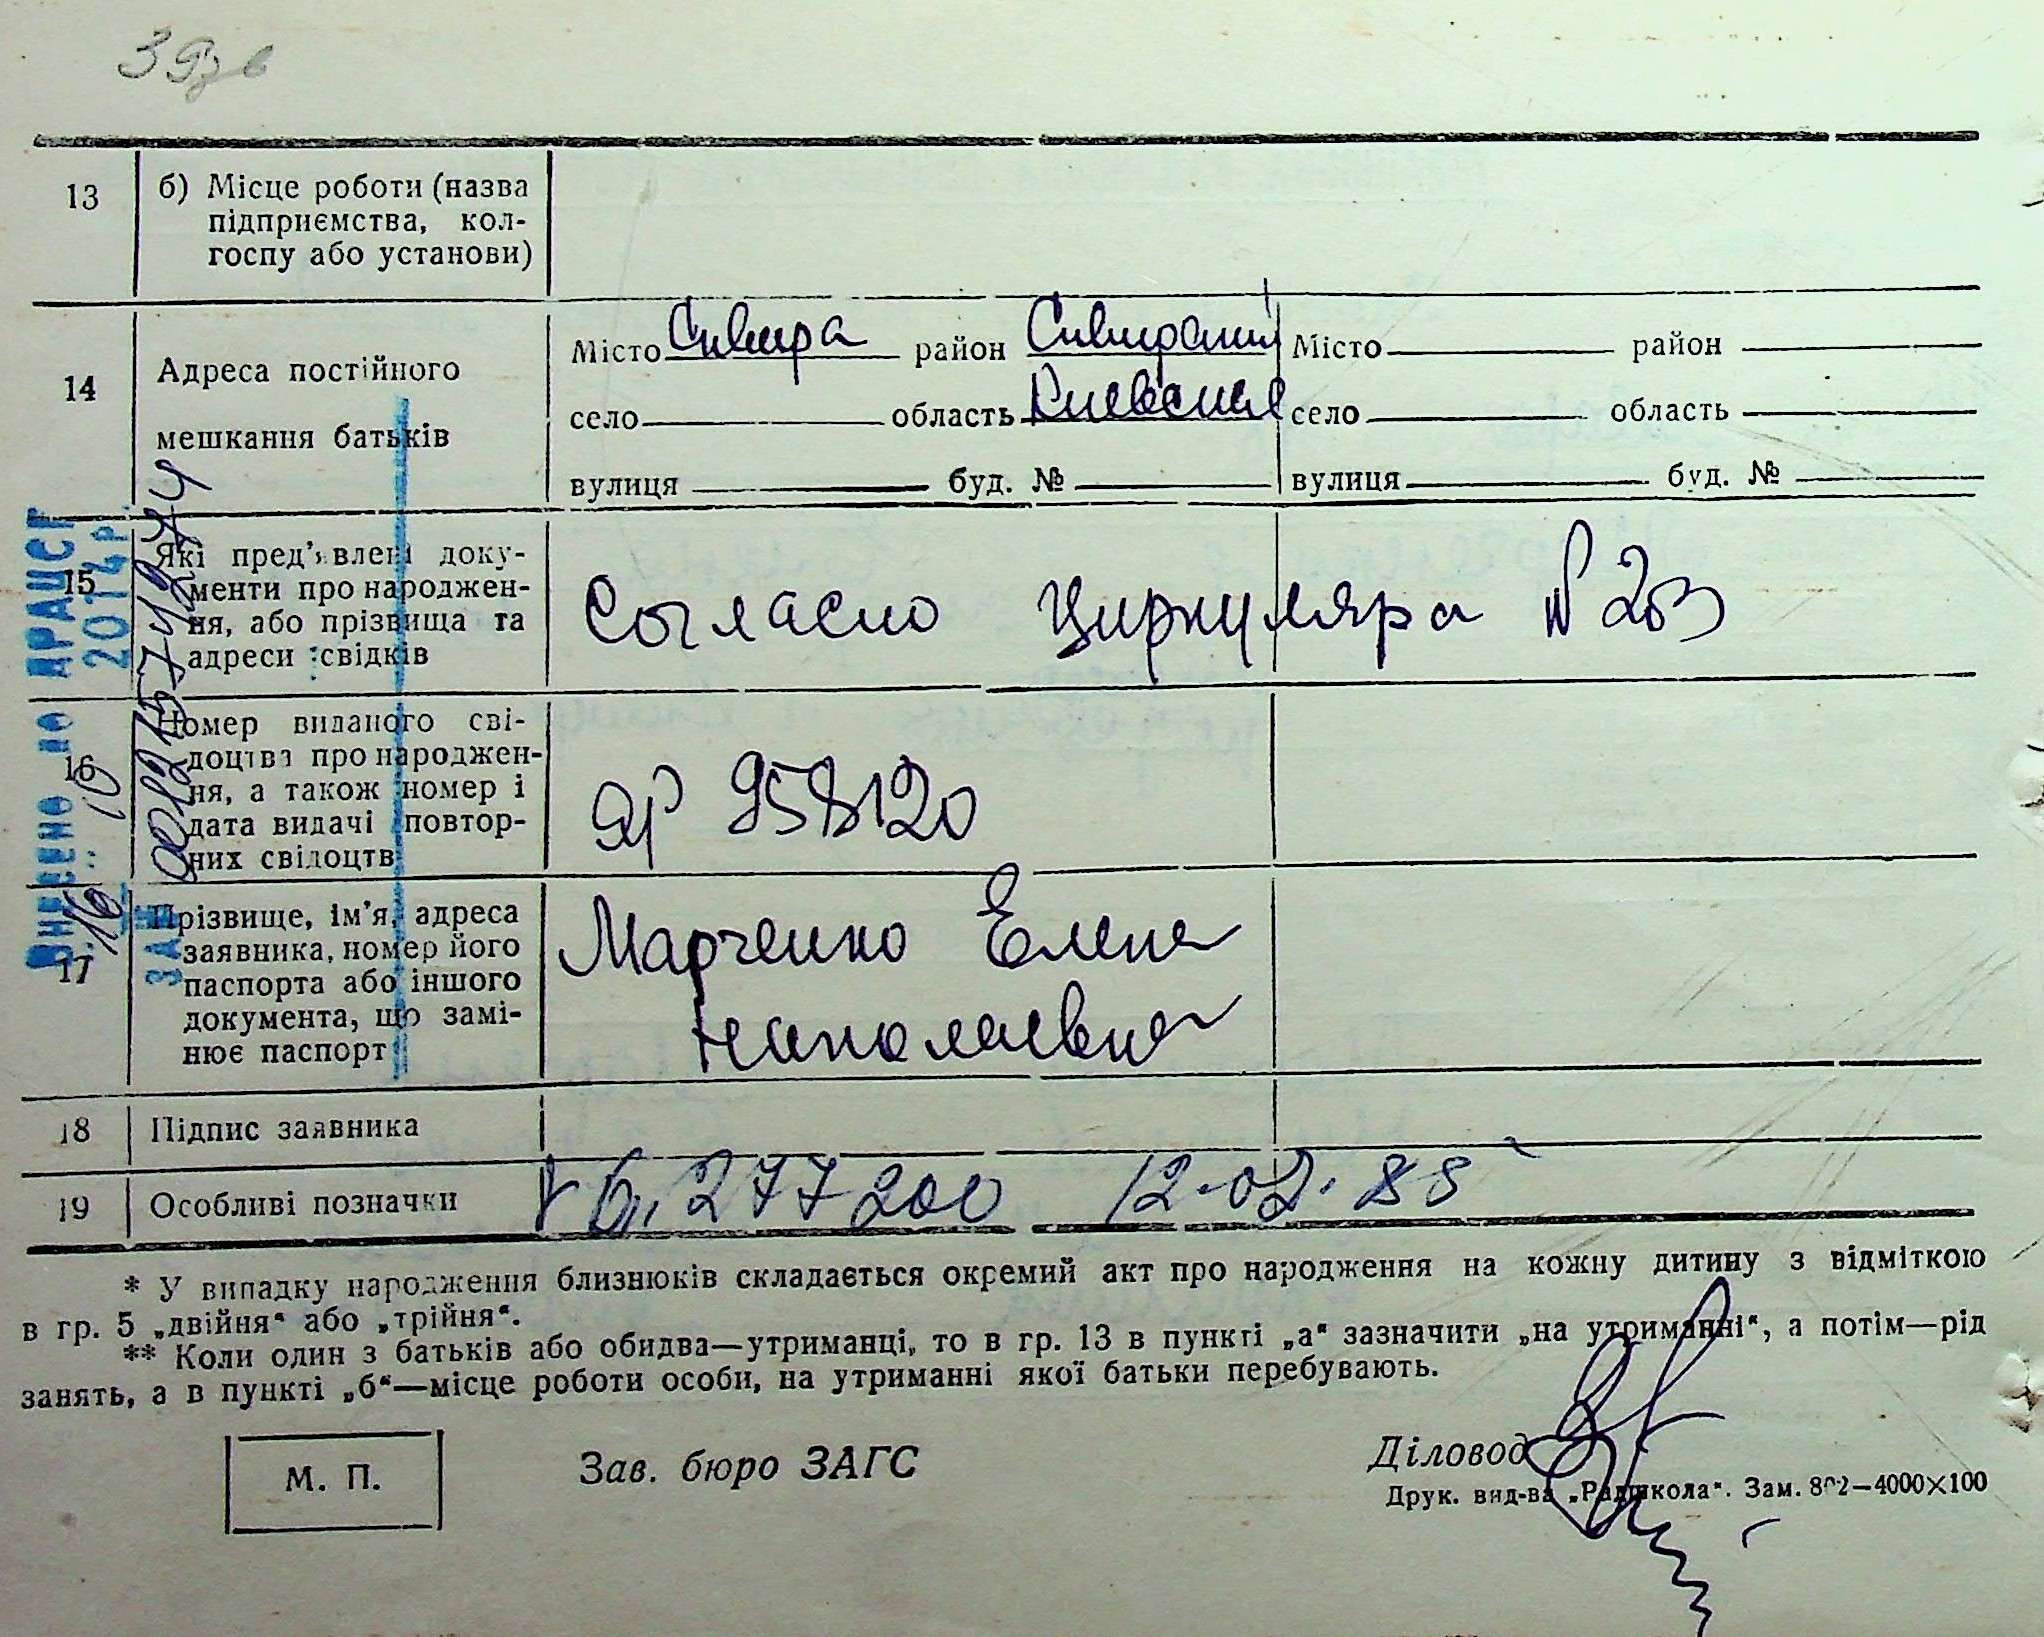 13
б) Місце роботи (назва
підприємства, кол-
госпу або установи)
14
Адреса постійного
мешкання батьків
Місто Сквира район Сквирский
село область Киевская
вулиця буд. №
Місто район
село область
вулиця буд. №
15
Які пред'явлені доку-
менти про народжен-
ня, або прізвища та
адреси свідків
Согласно Циркуляра № 203
16
Номер виданого сві-
доцтва про народжен-
ня, а також номер і
дата видачі повтор-
них свідоцтв
ЯР 958120
17
Прізвище, ім'я, адреса
заявника, номер його
паспорта або іншого
документа, що замі-
нює паспорт
Марченко Елена
Николаевна
18
Підпис заявника
19
Особливі позначки
277200 12.02.88
Внесено до ДРАЦСГ
2014р.
* У випадку народження близнюків складається окремий акт про народження на кожну дитину з відміткою
в гр. 5 „двійня“ або „трійня“.
** Коли один з батьків або обидва—утриманці, то в гр. 13 в пункті „а“ зазначити „на утриманні“, а потім—рід
занять, а в пункті „б“—місце роботи особи, на утриманні якої батьки перебувають.
М. П.
Зав. бюро ЗАГС
Діловод
Друк. вид-ва „Радшкола“. Зам. 802—4000×100